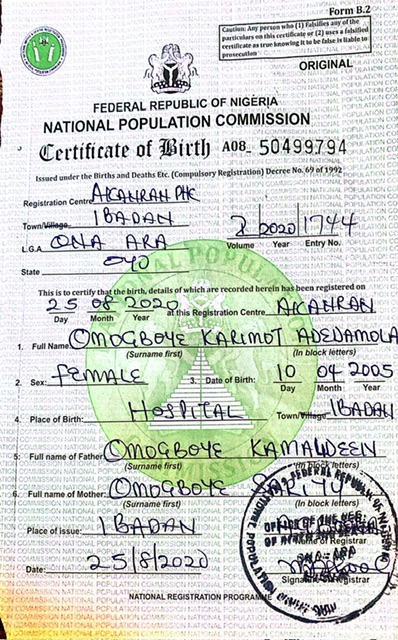 Form B.2
Caution: Any person who (1) Falsifies any of the
particulars on this certificate or (2) uses a falsified
certificate as true knowing it to be false is liable to
prosecution
ORIGINAL
FEDERAL REPUBLIC OF NIGERIA
NATIONAL POPULATION COMMISSION
Certificate of Birth A08_ 50499794
Issued under the Births and Deaths Etc. (Compulsory Registration) Decree No. 69 of 1992
Registration Centre AKANRAN PHC
Town/Village IBADAN
2 2020 1744
L.G.A ONA ARA Volume Year Entry No.
State OYO
This is to certify that the birth, details of which are recorded herein has been registered on
25 08 2020 at this Registration Centre AKANRAN
Day Month Year
1. Full Name OMOGBOYE KARIMOT ADEDAMOLA
(Surname first) (In block letters)
2. Sex: FEMALE 3. Date of Birth: 10 04 2005
Day Month Year
4. Place of Birth: HOSPITAL Town/Village IBADAN
5. Full name of Father OMOGBOYE KAMALDEEN
(Surname first) (In block letters)
6. Full name of Mother: OMOGBOYE
(Surname first) (In block letters)
Place of issue: IBADAN
Name of Registrar
Date: 25/8/2020
Signature of Registrar
NATIONAL REGISTRATION PROGRAMME